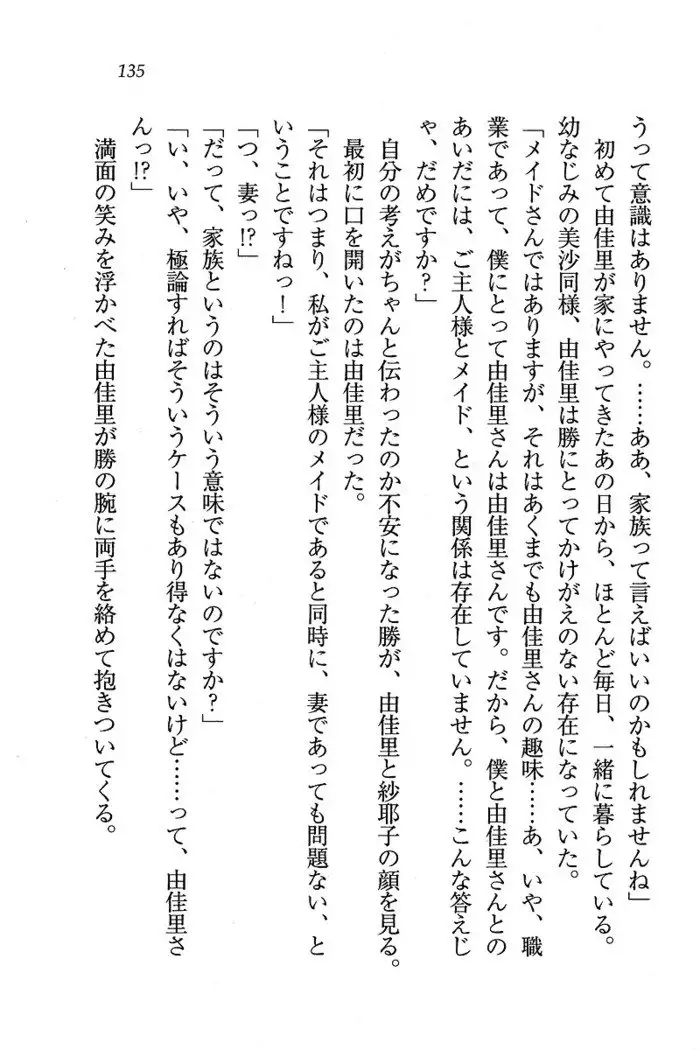 135
うって意識はありません。……ああ、家族って言えばいいのかもしれませんね」
初めて由佳里が家にやってきたあの日から、ほとんど毎日、一緒に暮らしている。
幼なじみの美沙同様、由佳里は勝にとってかけがえのない存在になっていた。
「メイドさんではありますが、それはあくまでも由佳里さんの趣味……あ、いや、職
業であって、僕にとって由佳里さんは由佳里さんです。だから、僕と由佳里さんとの
あいだには、ご主人様とメイド、という関係は存在していません。……こんな答えじ
ゃ、だめですか？」
自分の考えがちゃんと伝わったのか不安になった勝が、由佳里と紗耶子の顔を見る。
最初に口を開いたのは由佳里だった。
「それはつまり、私がご主人様のメイドであると同時に、妻であっても問題ない、と
いうことですねっ！」
「つ、妻っ!?」
「だって、家族というのはそういう意味ではないのですか？」
「い、いや、極論すればそういうケースもあり得なくはないけど……って、由佳里さ
んっ!?」
満面の笑みを浮かべた由佳里が勝の腕に両手を絡めて抱きついてくる。